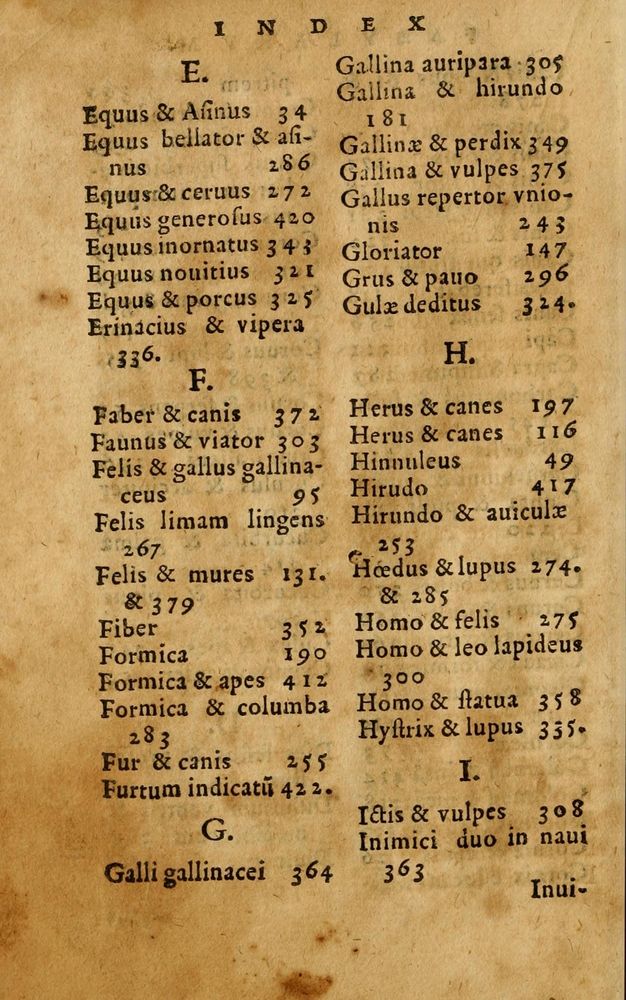 INDEX
E.
Equus & Aſinus 34
Equus bellator & aſi-
nus 286
Equus & ceruus 272
Equus generoſus 420
Equus inornatus 343
Equus nouitius 321
Equus & porcus 325
Erinacius & vipera
336.
F.
Faber & canis 372
Faunus & viator 303
Felis & gallus gallina-
ceus 95
Felis limam lingens
267
Felis & mures 131.
& 379
Fiber 352
Formica 190
Formica & apes 412
Formica & columba
283
Fur & canis 255
Furtum indicatũ 422.
G.
Galli gallinacei 364
Gallina auripara 305
Gallina & hirundo
181
Gallinæ & perdix 349
Gallina & vulpes 375
Gallus repertor vnio-
nis 243
Gloriator 147
Grus & pauo 296
Gulæ deditus 324.
H.
Herus & canes 197
Herus & canes 116
Hinnuleus 49
Hirudo 417
Hirundo & auiculæ
253
Hœdus & lupus 274.
& 285
Homo & felis 275
Homo & leo lapideus
300
Homo & ſtatua 358
Hyſtrix & lupus 335.
I.
Ictis & vulpes 308
Inimici duo in naui
363
Inui-